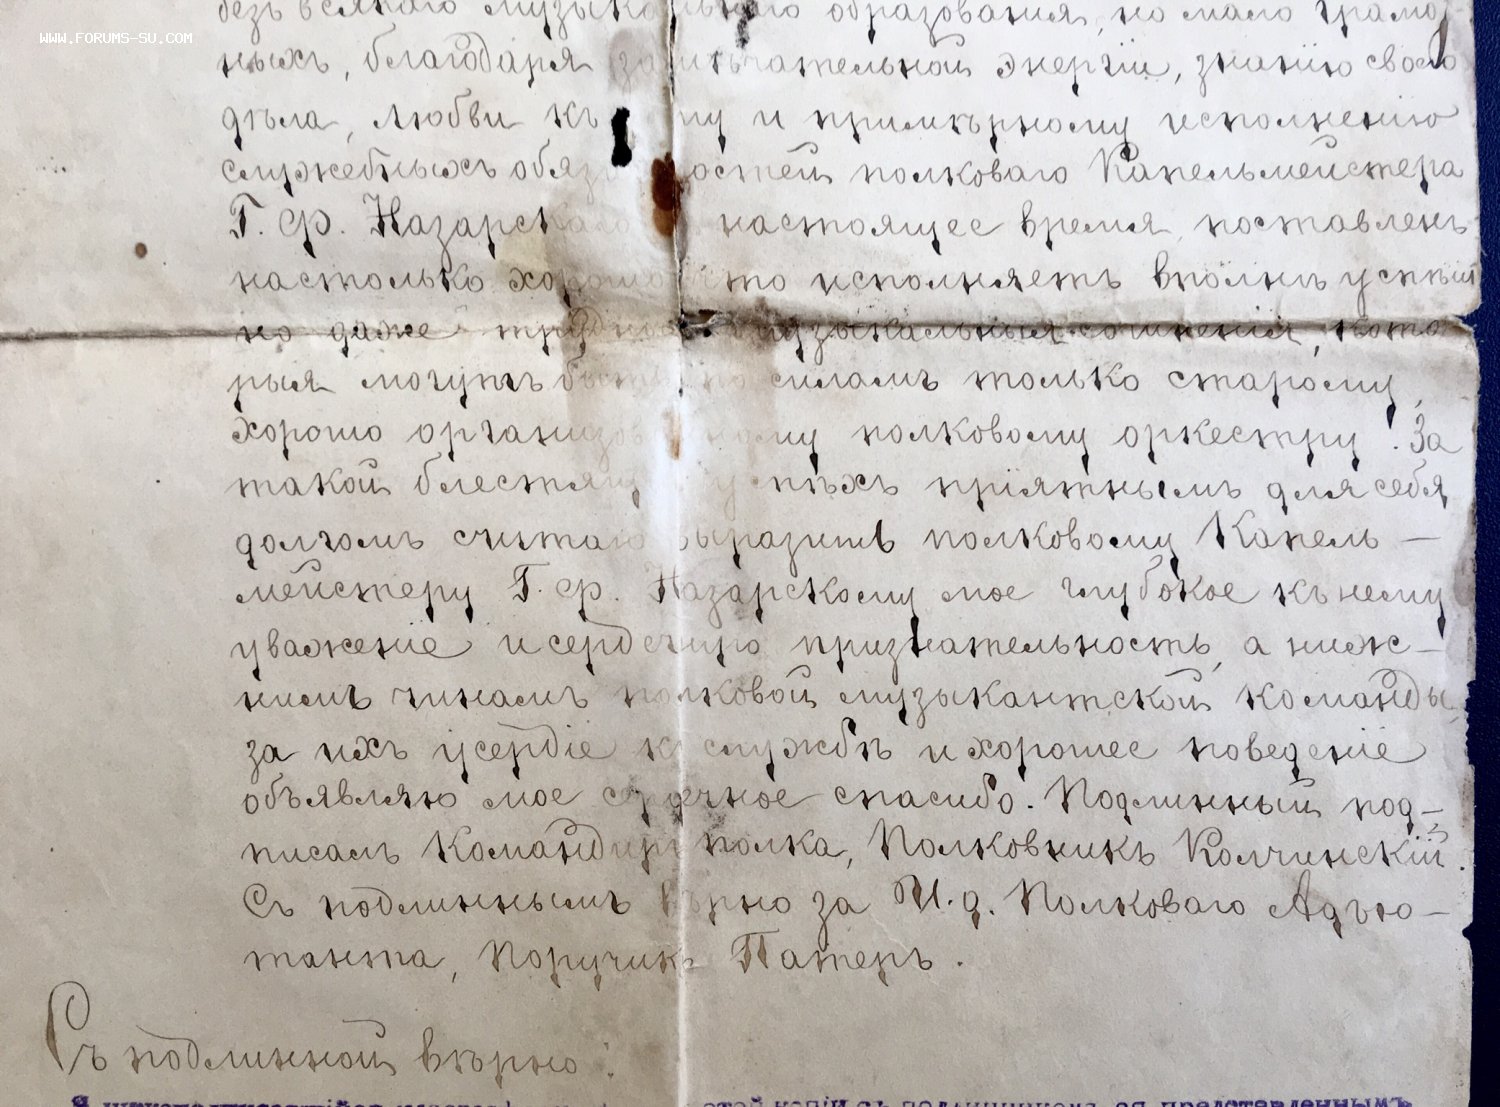 WWW.FORUMS-SU.COM
безъ всякаго музыкальнаго образованія, но мало грамот
ныхъ, благодаря замѣчательной энергіи, знанію своего
дѣла, любви къ нему и примѣрному исполненію
служебныхъ обязанностей полковаго Капельмейстера
Г. Ф. Назарскаго настоящее время поставленъ
настолько хорошо что исполняетъ вполнѣ успѣш
но даже трудныя музыкальныя сочиненія, кото
рыя могутъ быть по силамъ только старому,
хорошо организованному полковому оркестру. За
такой блестящій успѣхъ пріятнымъ для себя
долгомъ считаю выразить полковому Капель—
мейстеру Г. Ф. Назарскому мое глубокое къ нему
уваженіе и сердечную признательность, а ниж—
нимъ чинамъ полковой музыкантской команды,
за ихъ усердіе къ службѣ и хорошее поведеніе
объявляю мое сердечное спасибо. Подлинный под—
писалъ Командиръ полка, Полковникъ Колчинскій.
Съ подлиннымъ вѣрно за И.д. Полковаго Адъю—
танта, Поручикъ Патеръ.
Съ подлинной вѣрно:
Я нижеподписавшійся копіи съ подлинникомъ ея представленнымъ